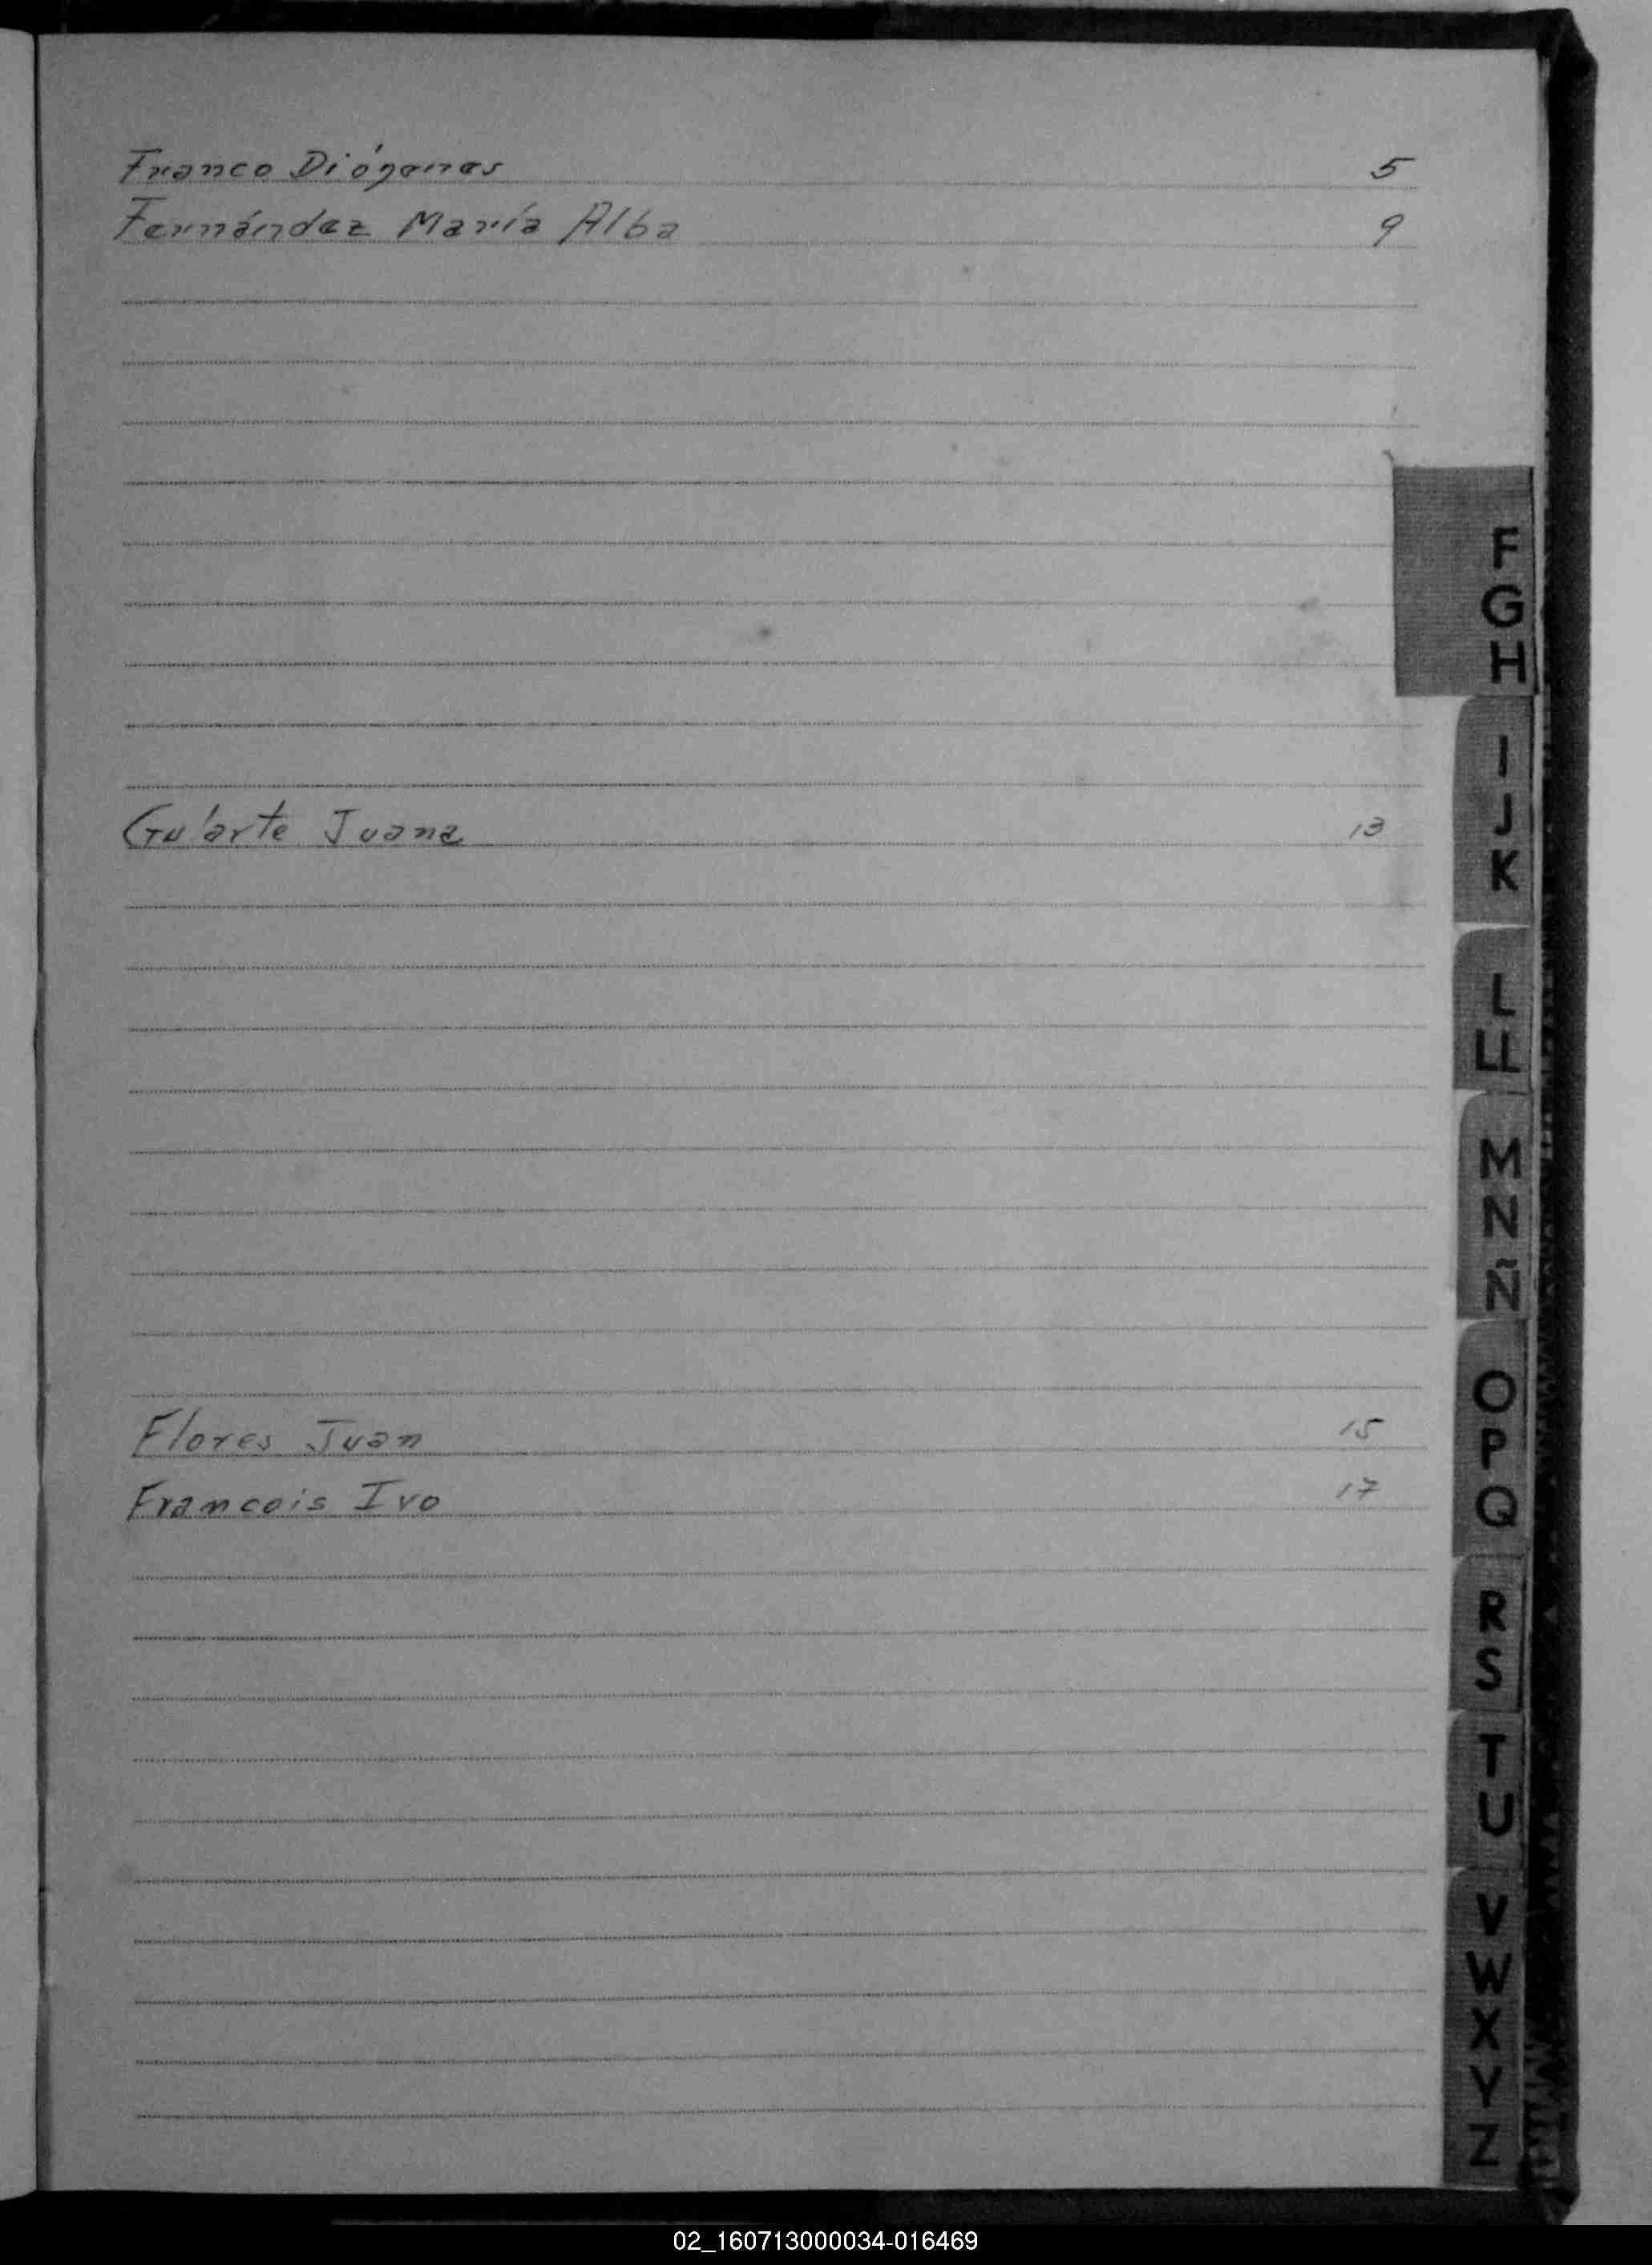 Franco Diógenes 5
Fernández María Alba 9
Juana 13
Flores Juan 15
Francois Ivo 17
F
G
H
I
J
K
L
LL
M
N
Ñ
O
P
Q
R
S
T
U
V
W
X
Y
Z
02_160713000034-016469